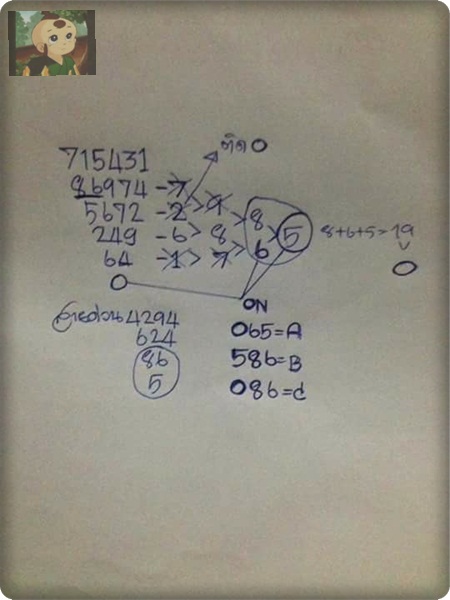 ติด O
715431
86974 - 7
5672 - 2 > 9
249 - 6 > 8 > 8
64 - 1 > 7 > 6 > 5 8+6+5=19
O
O
ON
4294
624
86
5
065=A
586=B
086=C